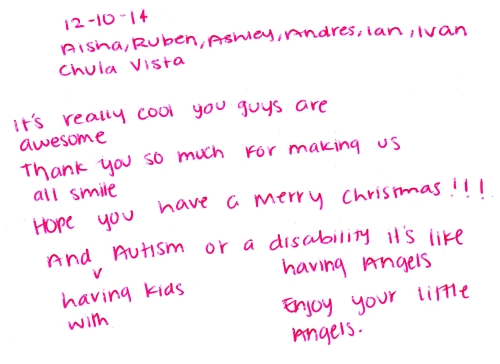 12-10-14
Aisha, Ruben, Ashley, Andres, Ian, Ivan
Chula Vista
it's really cool you guys are
awesome
Thank you so much for making us
all smile
Hope you have a merry christmas!!!
And having kids with Autism or a disability it's like
having Angels
Enjoy your little
Angels.